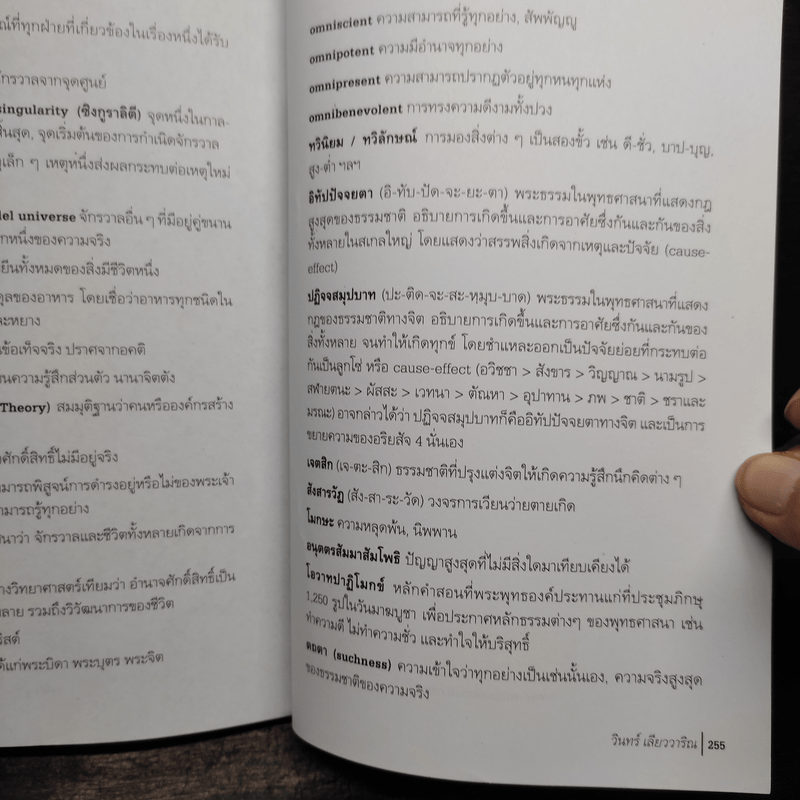 ณ์ที่ทุกฝ่ายที่เกี่ยวข้องในเรื่องหนึ่งได้รับ
จักรวาลจากจุดศูนย์
singularity (ซิงกูราลิตี) จุดหนึ่งในกาล-
สิ้นสุด, จุดเริ่มต้นของการกำเนิดจักรวาล
เล็ก ๆ เหตุหนึ่งส่งผลกระทบต่อเหตุใหม่
lel universe จักรวาลอื่น ๆ ที่มีอยู่คู่ขนาน
กหนึ่งของความจริง
ยีนทั้งหมดของสิ่งมีชีวิตหนึ่ง
ดุลของอาหาร โดยเชื่อว่าอาหารทุกชนิดใน
และหยาง
ข้อเท็จจริง ปราศจากอคติ
นความรู้สึกส่วนตัว นานาจิตตัง
Theory) สมมุติฐานว่าคนหรือองค์กรสร้าง
ศักดิ์สิทธิ์ไม่มีอยู่จริง
ามารถพิสูจน์การดำรงอยู่หรือไม่ของพระเจ้า
ามารถรู้ทุกอย่าง
สนาว่า จักรวาลและชีวิตทั้งหลายเกิดจากการ
างวิทยาศาสตร์เทียมว่า อำนาจศักดิ์สิทธิ์เป็น
ลาย รวมถึงวิวัฒนาการของชีวิต
ริสต์
ด้แก่พระบิดา พระบุตร พระจิต
omniscient ความสามารถที่รู้ทุกอย่าง, สัพพัญญู
omnipotent ความมีอำนาจทุกอย่าง
omnipresent ความสามารถปรากฏตัวอยู่ทุกหนทุกแห่ง
omnibenevolent การทรงความดีงามทั้งปวง
ทวินิยม / ทวิลักษณ์ การมองสิ่งต่าง ๆ เป็นสองขั้ว เช่น ดี-ชั่ว, บาป-บุญ,
สูง-ต่ำ ฯลฯ
อิทัปปัจจยตา (อิ-ทับ-ปัด-จะ-ยะ-ตา) พระธรรมในพุทธศาสนาที่แสดงกฎ
สูงสุดของธรรมชาติ อธิบายการเกิดขึ้นและการอาศัยซึ่งกันและกันของสิ่ง
ทั้งหลายในสเกลใหญ่ โดยแสดงว่าสรรพสิ่งเกิดจากเหตุและปัจจัย (cause-
effect)
ปฏิจจสมุปบาท (ปะ-ติด-จะ-สะ-หฺมุบ-บาด) พระธรรมในพุทธศาสนาที่แสดง
กฎของธรรมชาติทางจิต อธิบายการเกิดขึ้นและการอาศัยซึ่งกันและกันของ
สิ่งทั้งหลาย จนทำให้เกิดทุกข์ โดยชำแหละออกเป็นปัจจัยย่อยที่กระทบต่อ
กันเป็นลูกโซ่ หรือ cause-effect (อวิชชา > สังขาร > วิญญาณ > นามรูป >
สฬายตนะ > ผัสสะ > เวทนา > ตัณหา > อุปาทาน > ภพ > ชาติ > ชราและ
มรณะ) อาจกล่าวได้ว่า ปฏิจจสมุปบาทก็คืออิทัปปัจจยตาทางจิต และเป็นการ
ขยายความของอริยสัจ 4 นั่นเอง
เจตสิก (เจ-ตะ-สิก) ธรรมชาติที่ปรุงแต่งจิตให้เกิดความรู้สึกนึกคิดต่าง ๆ
สังสารวัฏ (สัง-สา-ระ-วัด) วงจรการเวียนว่ายตายเกิด
โมกษะ ความหลุดพ้น, นิพพาน
อนุตตรสัมมาสัมโพธิ ปัญญาสูงสุดที่ไม่มีสิ่งใดมาเทียบเคียงได้
โอวาทปาฏิโมกข์ หลักคำสอนที่พระพุทธองค์ประทานแก่ที่ประชุมภิกษุ
1,250 รูปในวันมาฆบูชา เพื่อประกาศหลักธรรมต่างๆ ของพุทธศาสนา เช่น
ทำความดี ไม่ทำความชั่ว และทำใจให้บริสุทธิ์
ตถตา (suchness) ความเข้าใจว่าทุกอย่างเป็นเช่นนั้นเอง, ความจริงสูงสุด
ของธรรมชาติของความจริง
วินทร์ เลียววาริณ 255